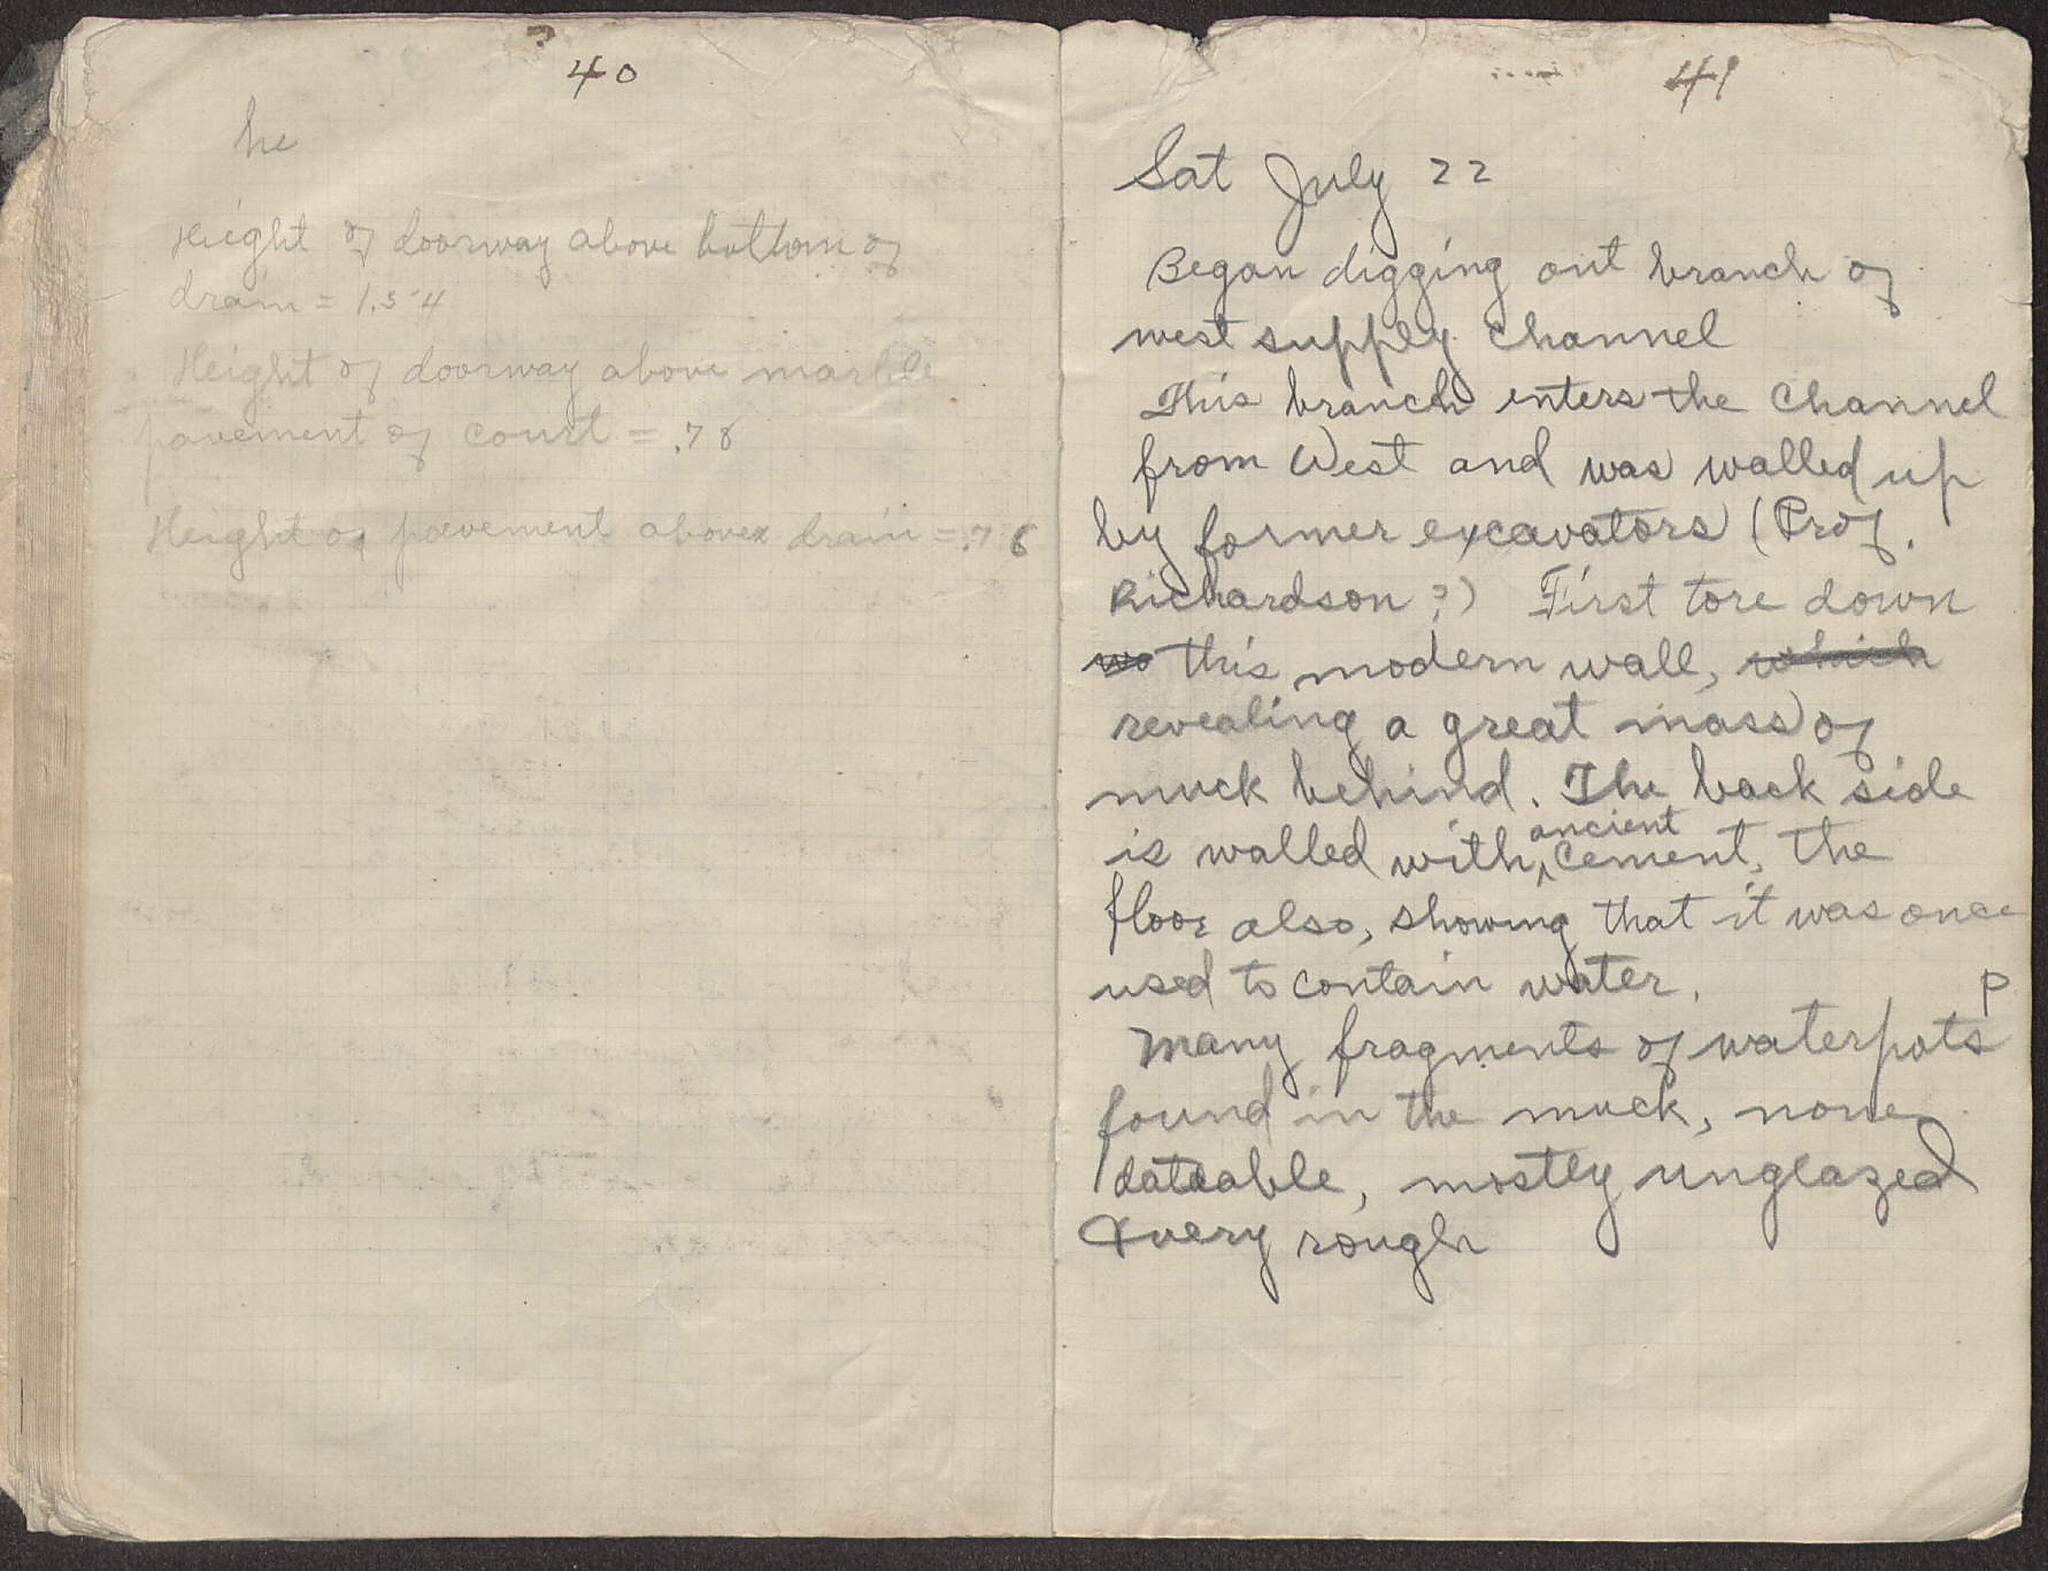 40
he
Height of doorway above bottom of
drain = 1.54
Height of doorway above marble
pavement of court = .78
Height of pavement above drain = .76
41
Sat July 22
Began digging out branch of
west supply channel
This branch enters the channel
from West and was walled up
by former excavators (Prof.
Richardson?) First tore down
wo this modern wall, which
revealing a great mass of
muck behind. The back side
is walled with ancient cement, the
floor also, showing that it was once
used to contain water.
P
Many fragments of waterpots
found in the muck, none
dateable, mostly unglazed
& very rough